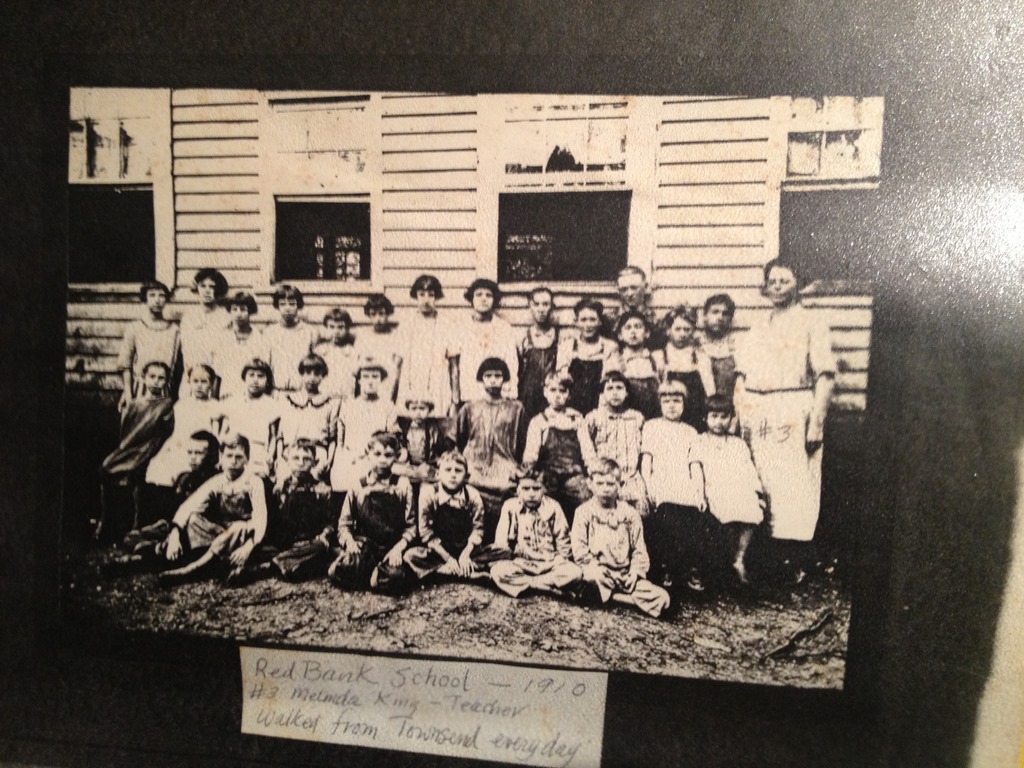 #3
Red Bank School - 1910
#3 Melinda King - Teacher
Walked from Townsend everyday